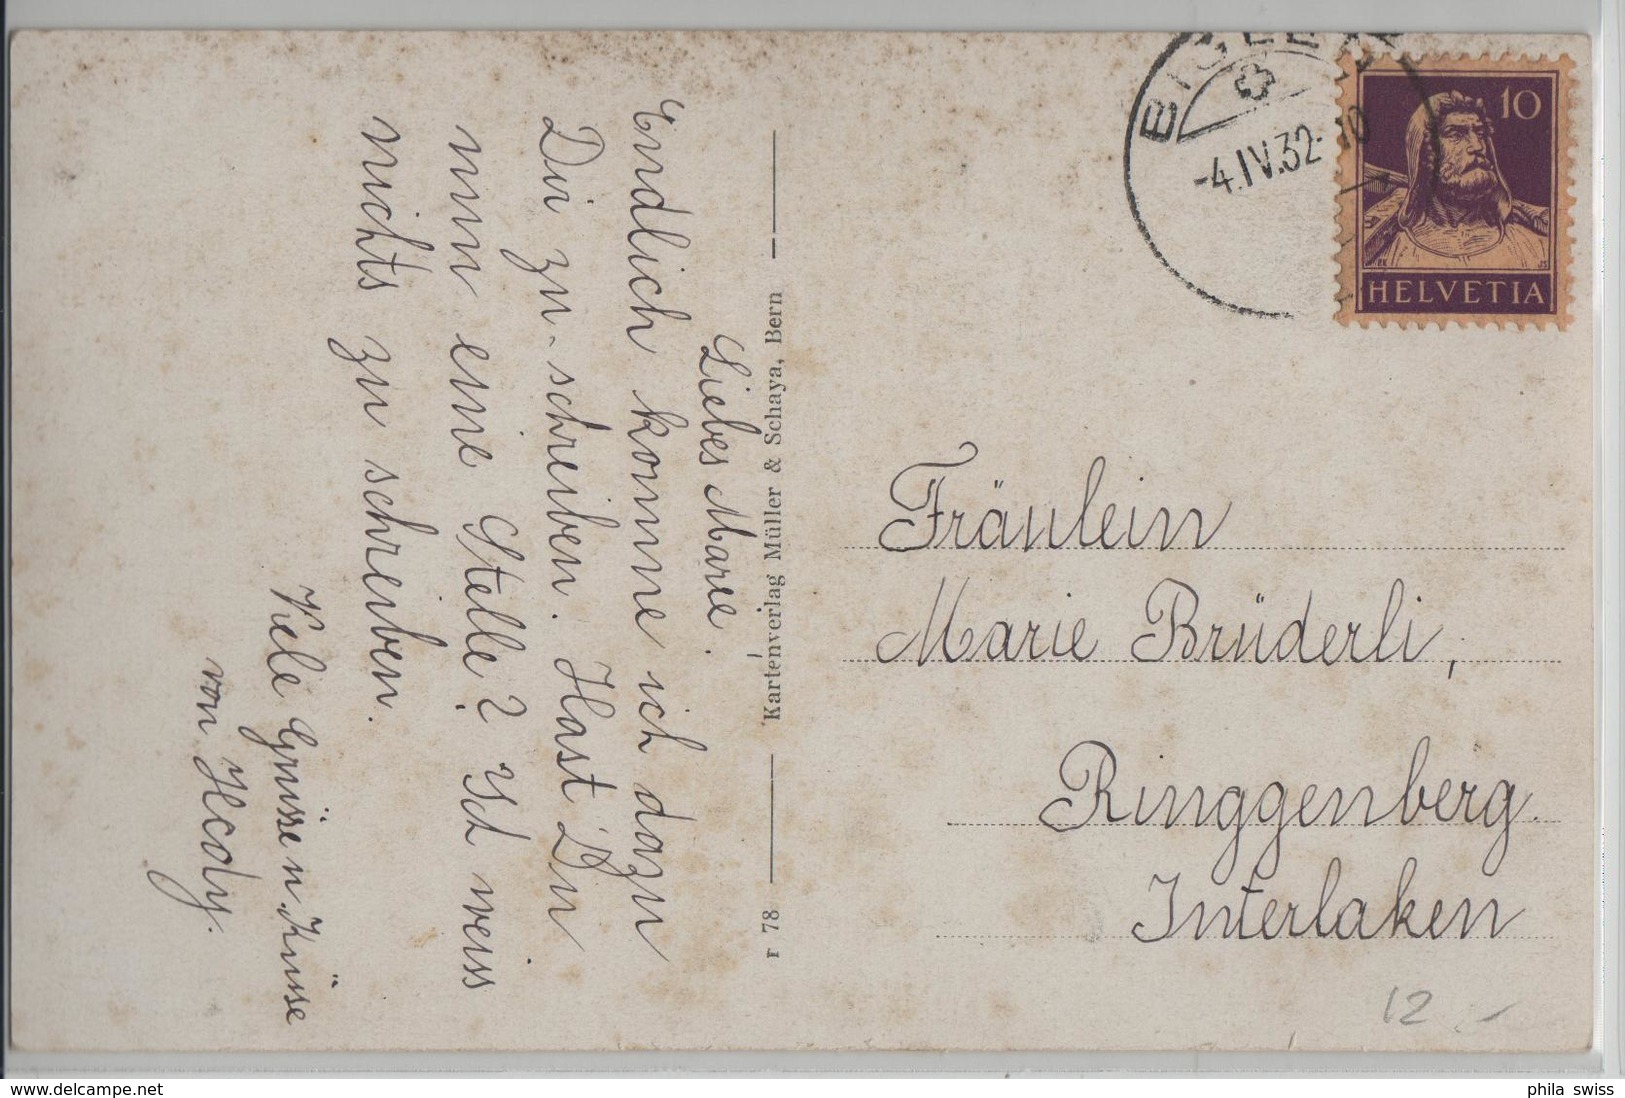 Liebes Marie.
Endlich komme ich dazu
Dir zu schreiben. Hast Du
nun eine Stelle? Ich weiss
nichts zu schreiben.
Viele Grüsse u. Küsse
von Hedy.
Kartenverlag Müller & Schaya, Bern
r 78
BIGLEN
-4.IV.32-10
10
HELVETIA
Fräulein
Marie Brüderli,
Ringgenberg.
Interlaken
12.-
delcampe.net
phila_swiss